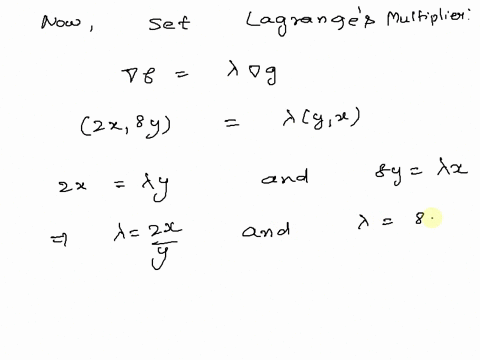 Now, Set Lagrange's Multiplier:
∇f = λ ∇g
(2x, 8y) = λ(y, x)
2x = λy and 8y = λx
⇒ λ = 2x/y and λ = 8